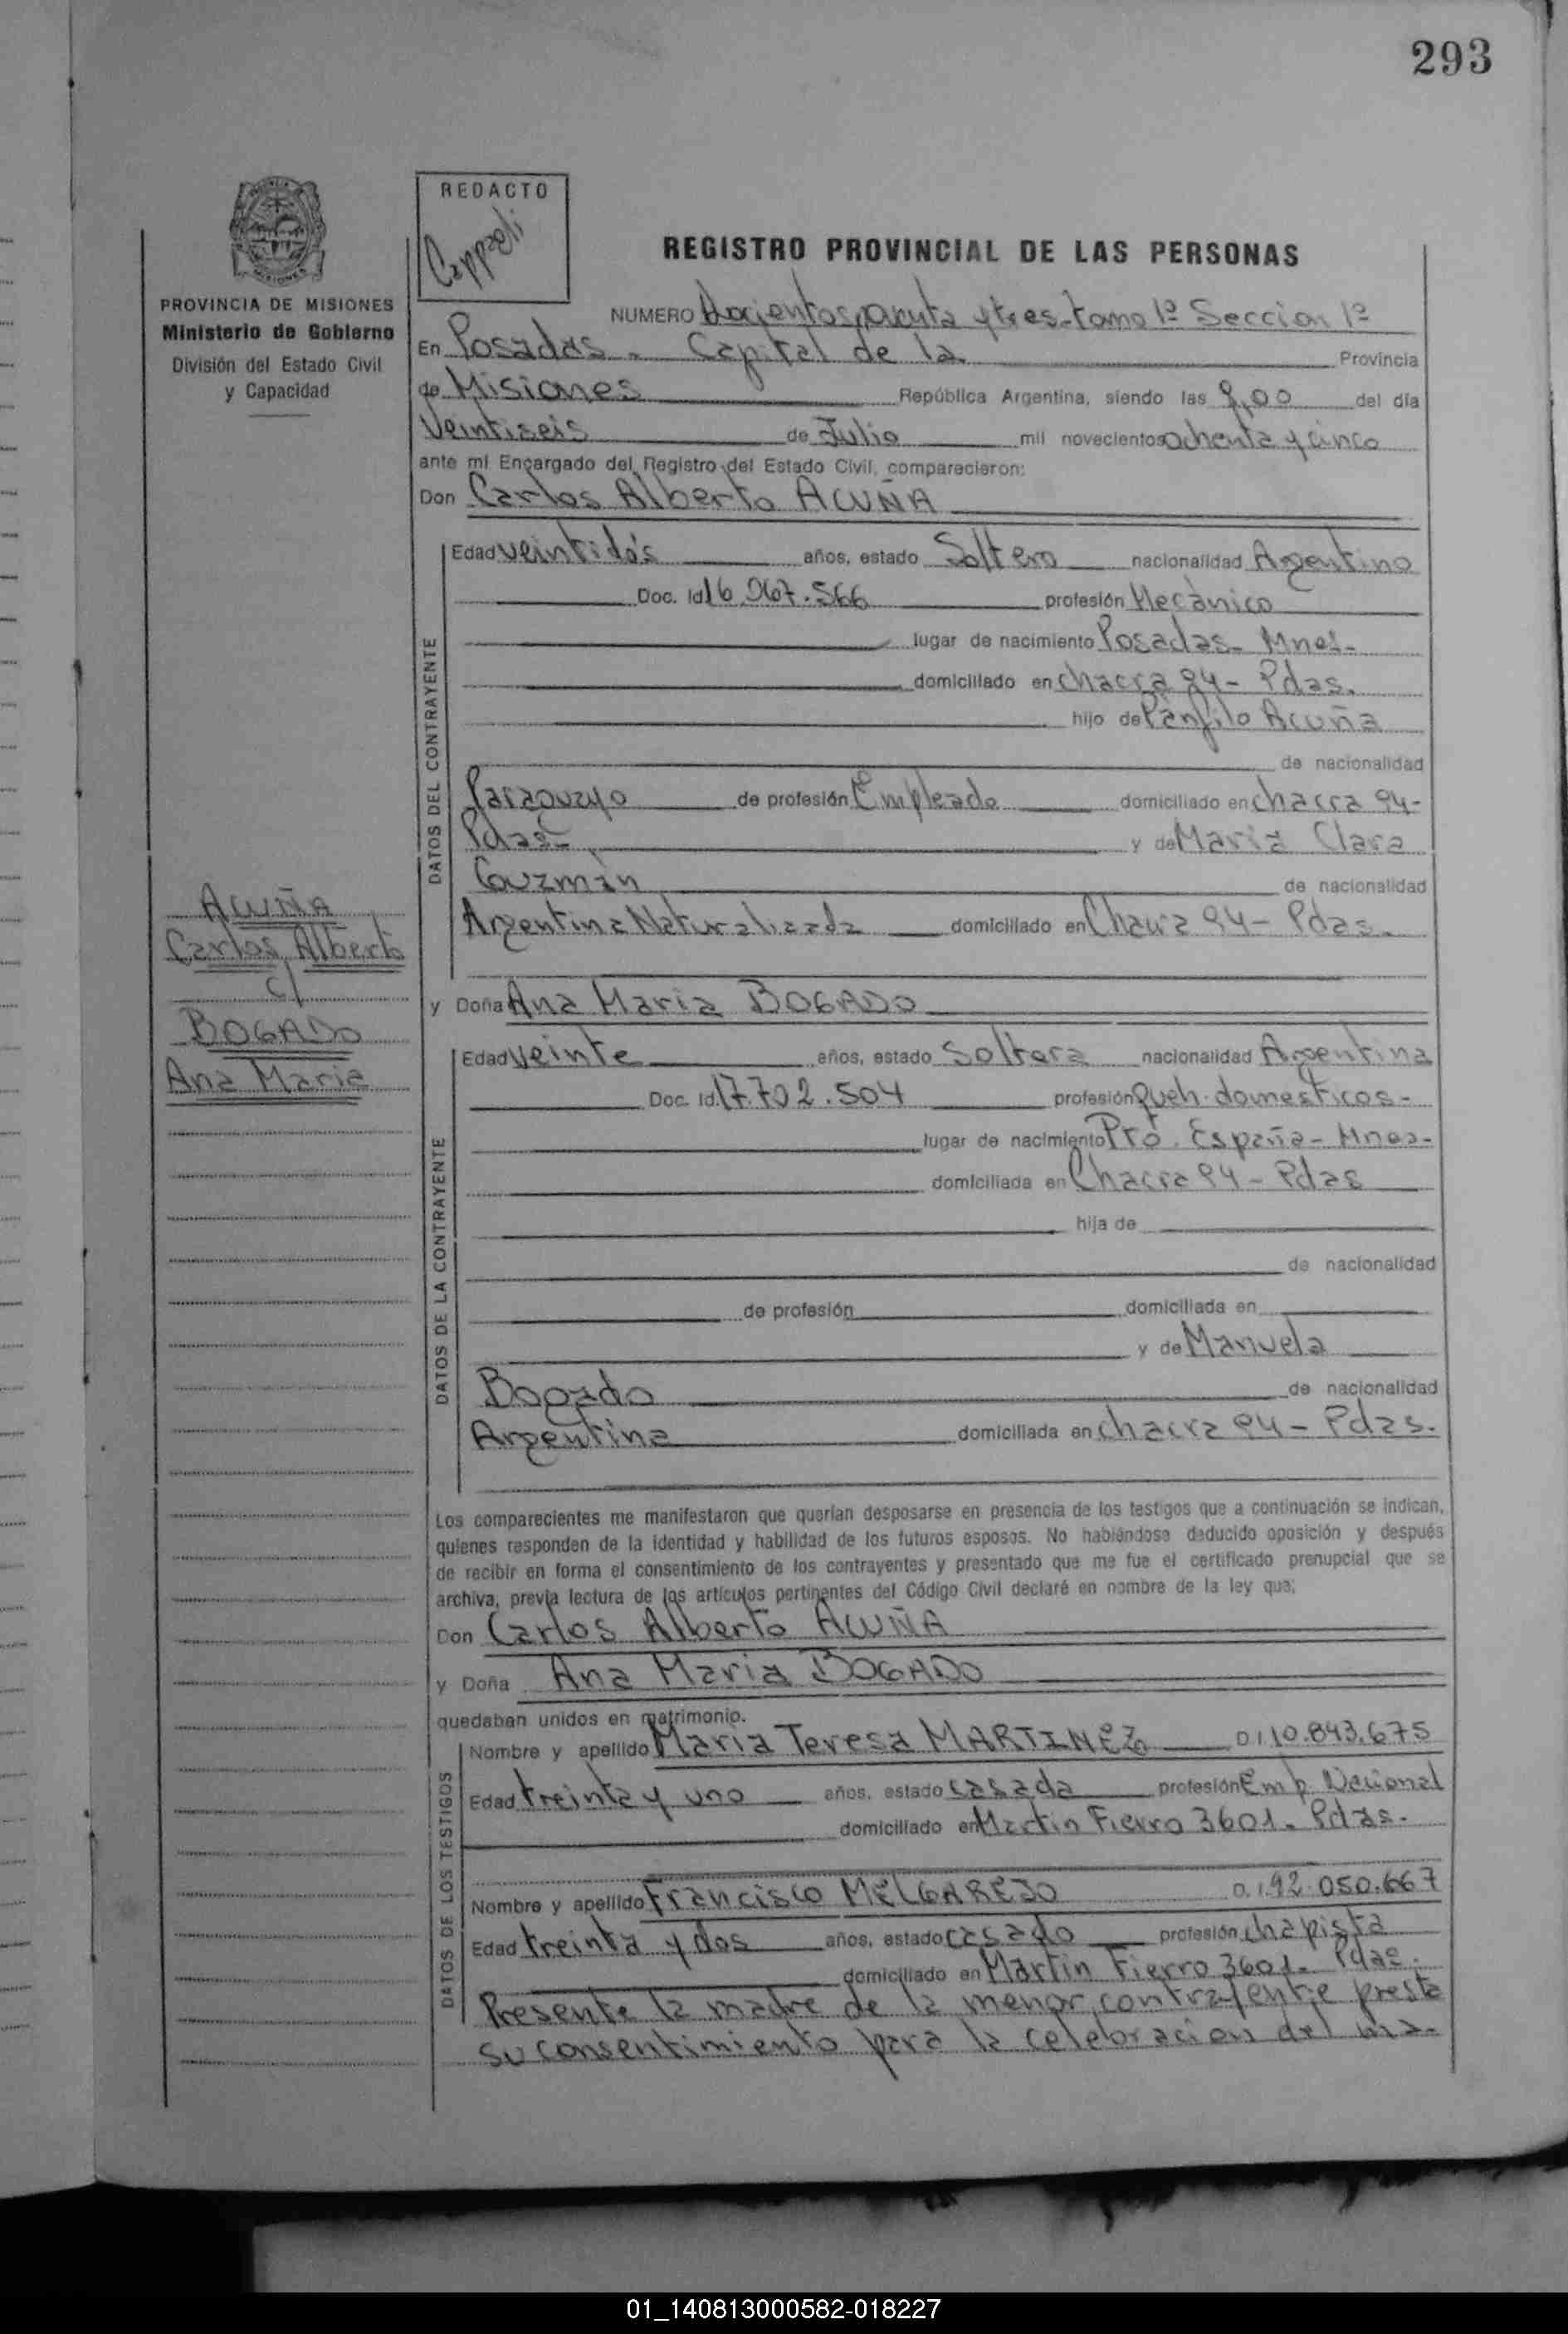 293
REDACTO
REGISTRO PROVINCIAL DE LAS PERSONAS
PROVINCIA DE MISIONES
Ministerio de Gobierno
División del Estado Civil
y Capacidad
NUMERO y tres- tomo 1º Seccion 1º
En Posadas - Capital de la Provincia
de Misiones República Argentina, siendo las del día
Veintiseis de Julio mil novecientos ochenta y cinco
ante mí Encargado del Registro del Estado Civil, comparecieron:
Don Carlos Alberto ACUÑA
DATOS DEL CONTRAYENTE
Edad veintidós años, estado Soltero nacionalidad Argentino
Doc. Id. profesión Mecánico
lugar de nacimiento Posadas- Mnes-
domiciliado en chacra 94- Pdas.
hijo de Pánfilo Acuña
de nacionalidad
Paraguayo de profesión Empleado domiciliado en chacra 94-
Pdas- y de Maria Clara
Guzmán de nacionalidad
Argentina Naturalizada domiciliado en Chacra 94- Pdas.
ACUÑA
Carlos Alberto
c/
BOGADO
Ana Maria
y Doña Ana Maria BOGADO
DATOS DE LA CONTRAYENTE
Edad veinte años, estado Soltera nacionalidad Argentina
Doc. Id. 17.702.504 profesión Queh. domesticos-
lugar de nacimiento Pto. España- Mnes-
domiciliada en Chacra 94- Pdas
hija de
de nacionalidad
de profesión domiciliada en
y de Manuela
Bogado de nacionalidad
Argentina domiciliada en chacra 94- Pdas.
Los comparecientes me manifestaron que querían desposarse en presencia de los testigos que a continuación se indican,
quienes responden de la identidad y habilidad de los futuros esposos. No habiéndose deducido oposición y después
de recibir en forma el consentimiento de los contrayentes y presentado que me fue el certificado prenupcial que se
archiva, previa lectura de los artículos pertinentes del Código Civil declaré en nombre de la ley que:
Don Carlos Alberto ACUÑA
y Doña Ana Maria BOGADO
quedaban unidos en matrimonio.
DATOS DE LOS TESTIGOS
Nombre y apellido Maria Teresa MARTINEZ 10.843.675
Edad treinta y uno años, estado casada profesión Emp. Nacional
domiciliado en Martin Fierro 3601- Pdas-
Nombre y apellido Francisco MELGAREJO 92.050.667
Edad treinta y dos años, estado casado profesión chapista
domiciliado en Martin Fierro 3601- Pdas.
Presente la madre de la menor contrayente presta
su consentimiento para la celebracion del ma-
01_140813000582-018227